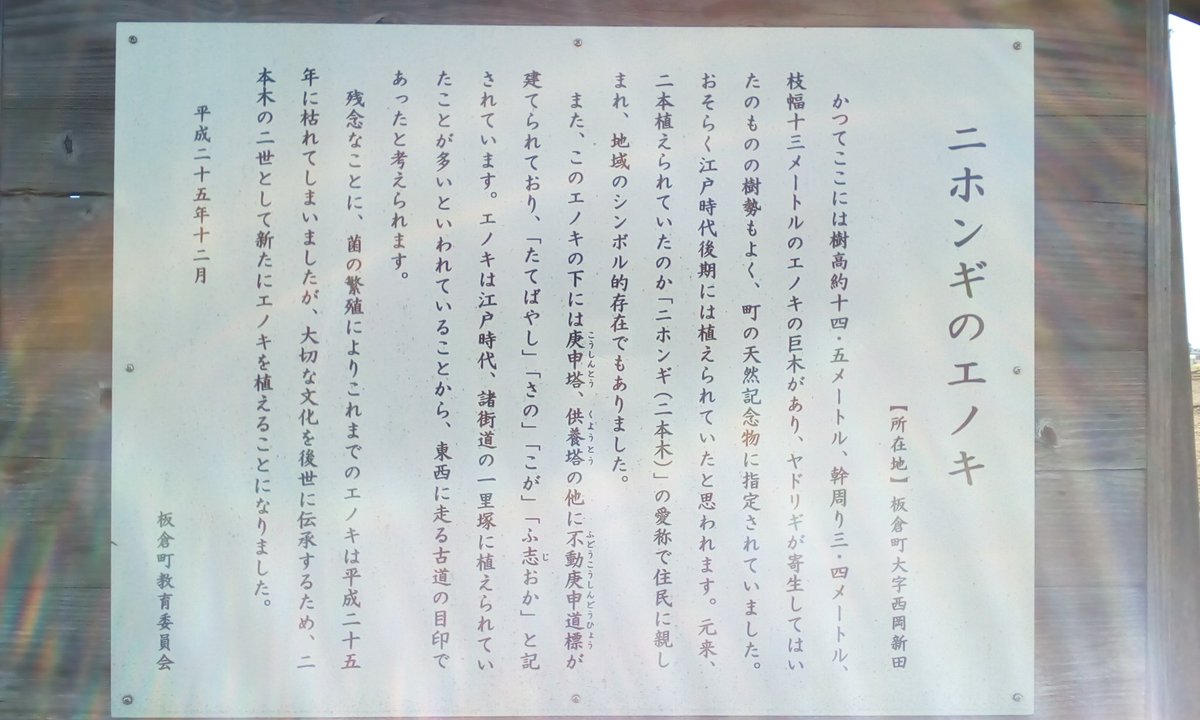 ニホンギのエノキ
【所在地】板倉町大字西岡新田
かつてここには樹高約十四・五メートル、幹周り三・四メートル、
枝幅十三メートルのエノキの巨木があり、ヤドリギが寄生してはい
たのものの樹勢もよく、町の天然記念物に指定されていました。
おそらく江戸時代後期には植えられていたと思われます。元来、
二本植えられていたのか「ニホンギ(二本木)」の愛称で住民に親し
まれ、地域のシンボル的存在でもありました。
また、このエノキの下には庚申塔、供養塔の他に不動庚申道標が
こうしんとう くようとう ふどうこうしんどうひょう
建てられており、「たてばやし」「さの」「こが」「ふ志おか」と記
じ
されています。エノキは江戸時代、諸街道の一里塚に植えられてい
たことが多いといわれていることから、東西に走る古道の目印で
あったと考えられます。
残念なことに、菌の繁殖によりこれまでのエノキは平成二十五
年に枯れてしまいましたが、大切な文化を後世に伝承するため、二
本木の二世として新たにエノキを植えることになりました。
平成二十五年十二月
板倉町教育委員会